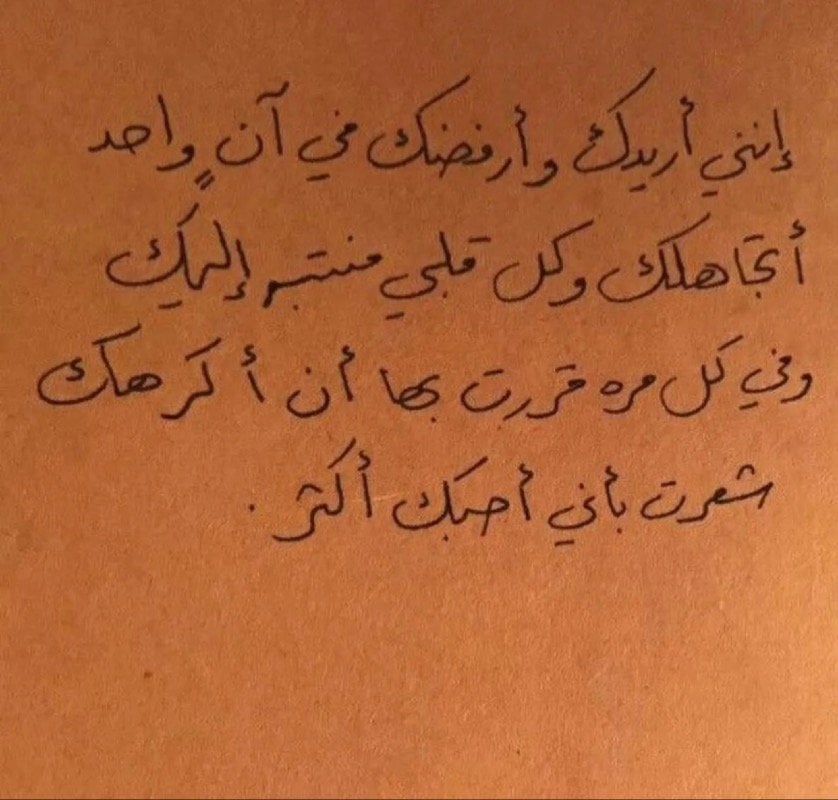 إنني أريدك وأرفضك في آنٍ واحد
أتجاهلك وكل قلبي منتبه إليك
وفي كل مره قررت بها أن أكرهك
شعرت بأني أحبك أكثر .